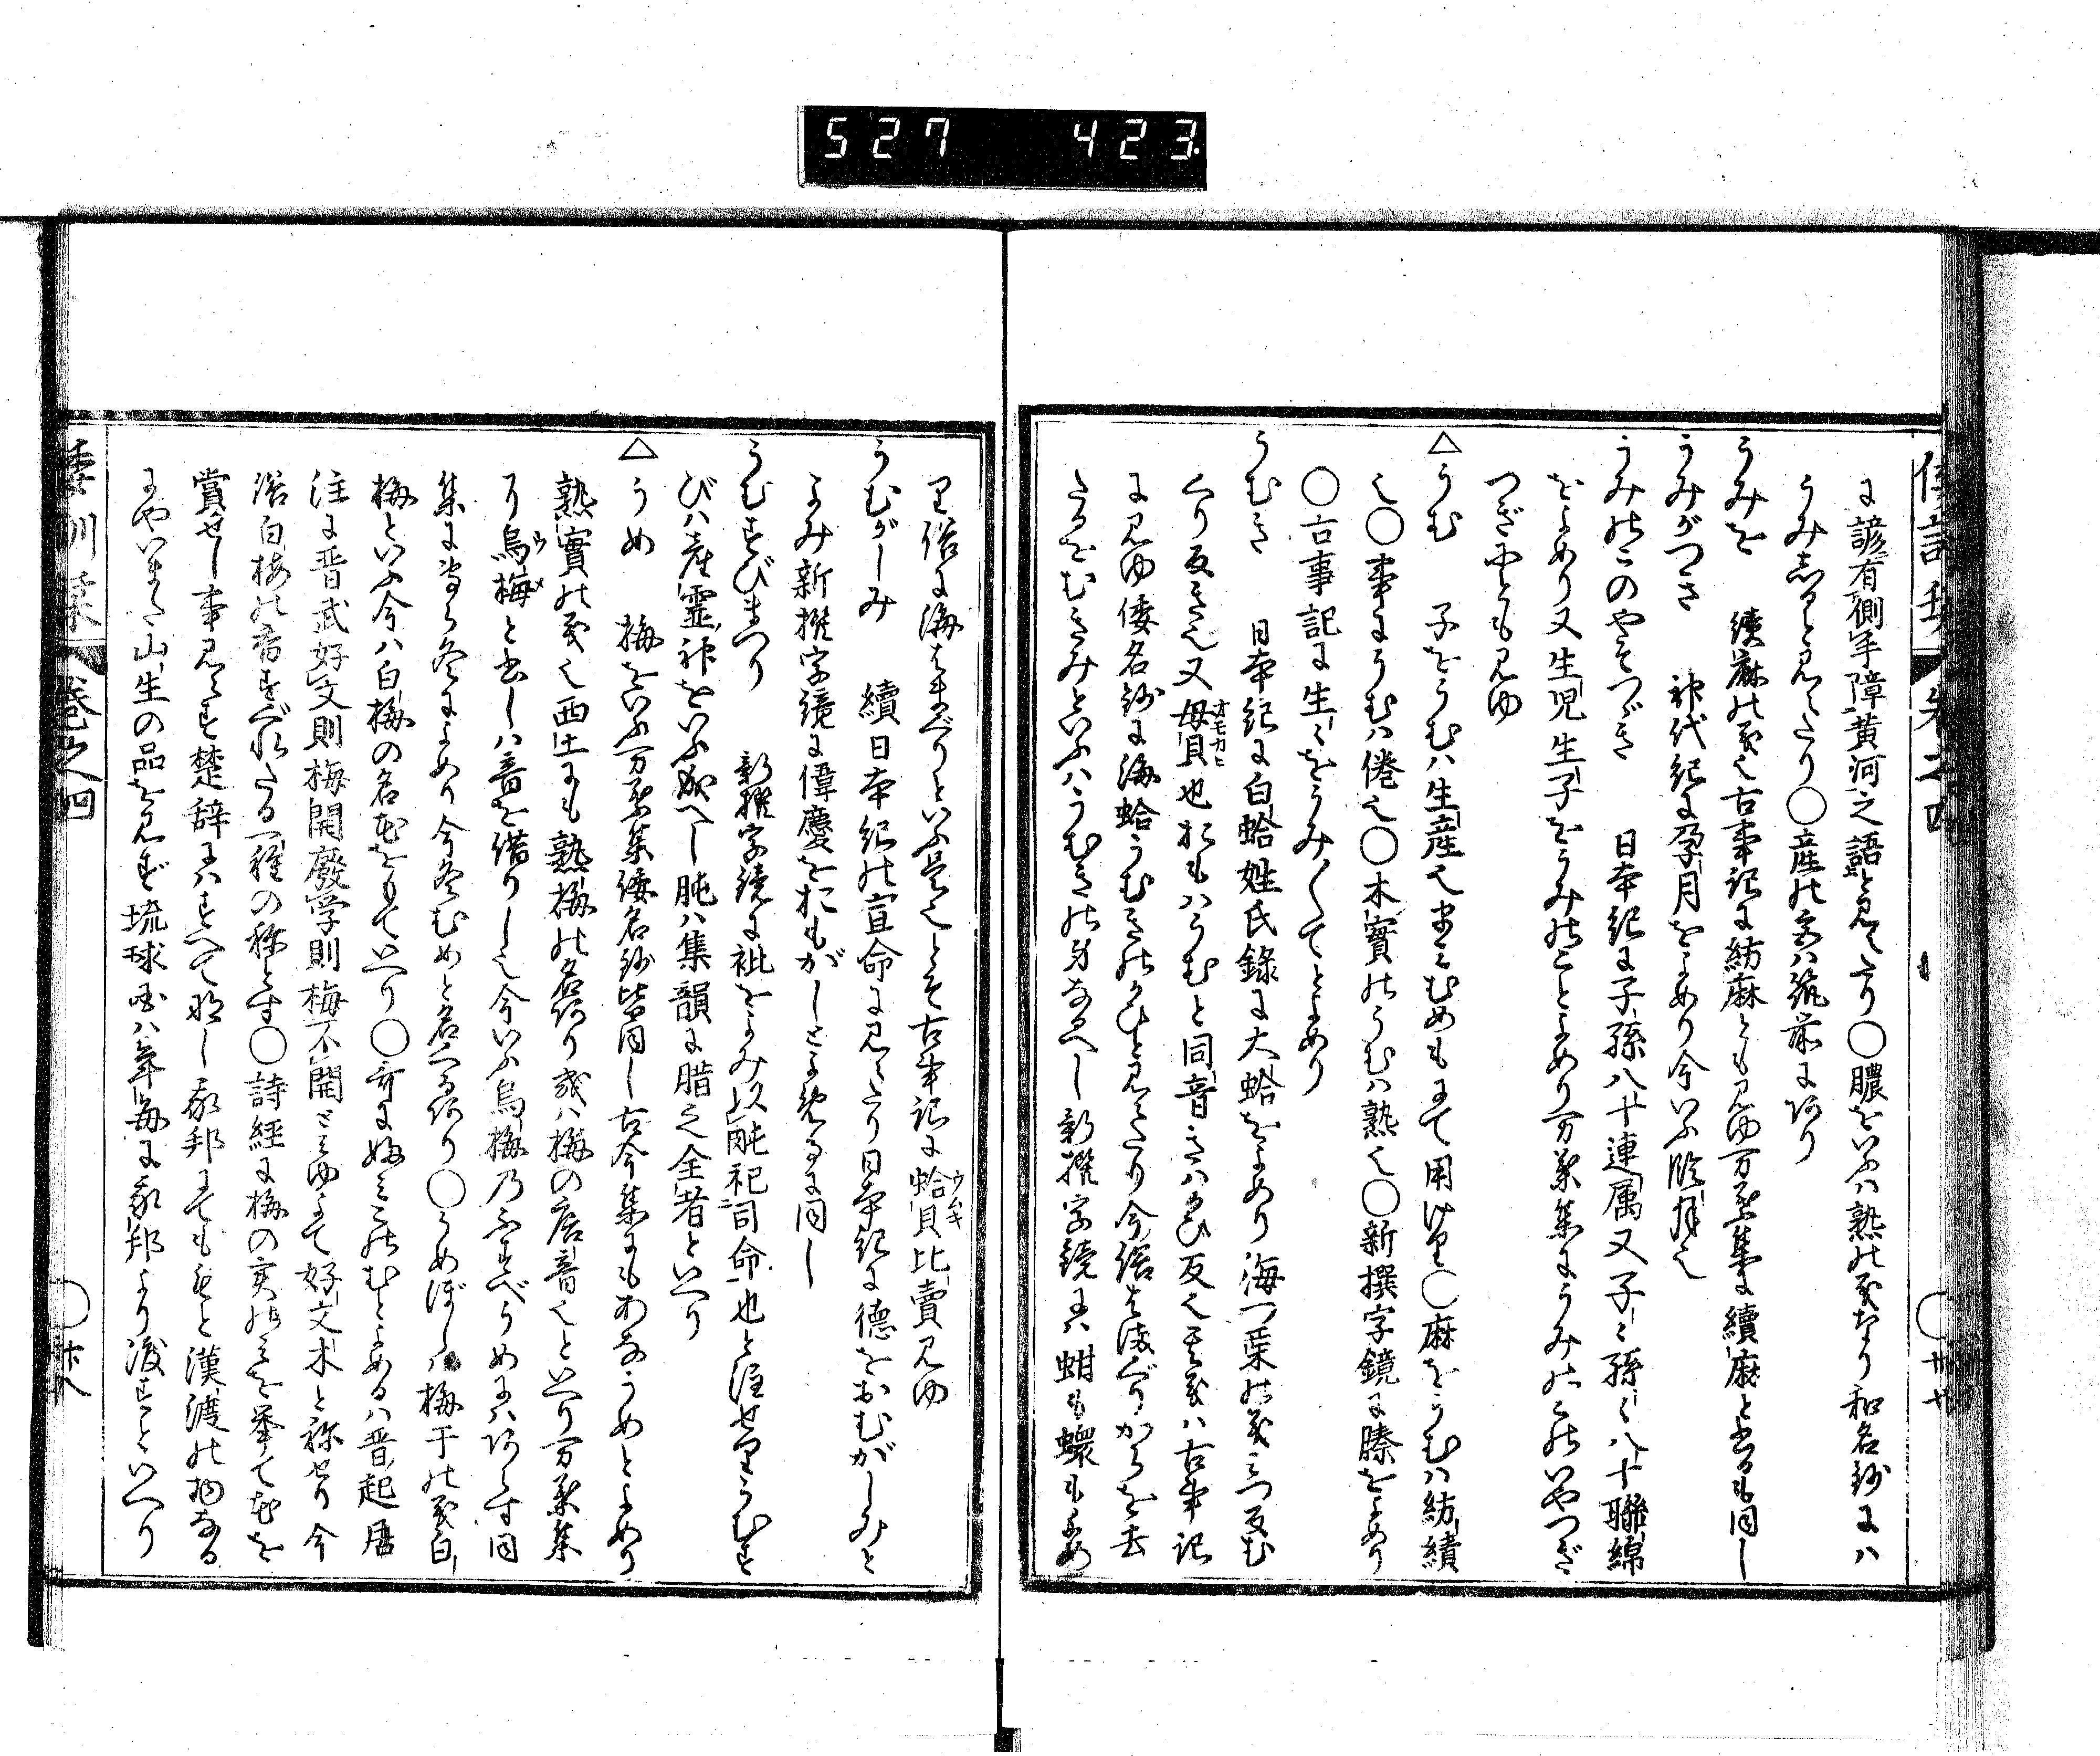 527 423
倭訓栞 巻之四
に諺有側手障黄河之語と見えたり〇膿をいふハ熟の義なり和名鈔にハ
うみしると見えたり〇産の宮ハ筑前にあり
うみを 續麻の義也古事記に紡麻とも見ゆ万葉集に續麻と書るも同し
うみがつき 神代紀に孕月をよめり今いふ臨月也
うみのこのやそつゞき 日本紀に子孫八十連属又子々孫々八十聯綿
をよめり又生児生子をうみのことよめり万葉集にうみのこのいやつぎ
つぎにとも見ゆ
△うむ 子をうむハ生産也まくむめもにて用けり〇麻をうむハ紡績
也〇事にうむハ倦也〇木實のうむハ熟也〇新撰字鏡に膝をよめり
〇古事記に生々をうみ〳〵てとよめり
うむき 日本紀に白蛤姓氏錄に大蛤をよめり海つ菜の義みつ反む
くり反き也又母貝也おもハうむと同音きハかひ反也其義ハ古事記
オモカヒ
に見ゆ倭名鈔に海蛤うむきのかひと見えたり今俗はまぐりからを去
たるをむきみといふハうむきの身なるへし新撰字鏡にハ蚶も蠯もよめ
り俗に海はまぐりといふ是也とそ古事記に蛤貝比賣見ゆ
ウムキ
うむがしみ 續日本紀の宣命に見えたり日本紀に德をおむがしみと
よみ新撰字鏡に偉慶をおもがしとよめるに同し
うむすびまつり 新撰字鏡に祉をよみ以䏰祀司命也と注せりうむす
びハ産霊神をいふ成へし肫ハ集韻に腊之全者といへり
△うめ 梅をいふ万葉集倭名鈔皆同し古今集にもあなうめとよめり
熟實の義也西土にも熟梅の名あり或ハ梅の唐音也といへり万葉集
に烏梅と書しハ音を借りし也今いふ烏梅乃ふすべうめにハあらす同
ウメ
集に当ら冬によめり今冬むめと名くるあり〇うめぼしハ梅干の義白
梅といふ今ハ白梅の名花をもていへり〇哥に好文むとよめるハ晋起居
注に晋武好文則梅開廢学則梅不開とみゆよて好文木と称せり今
俗白梅の香すぐれたる一種の称とす〇詩經に梅の実のミを挙て花を
賞せし事見えす楚辞にハすへて那し我邦にてももと漢渡の物なる
にやいまた山生の品を見ず琉球国ハ年毎に我邦より渡すといへり
倭訓栞 巻之四
〇廿八